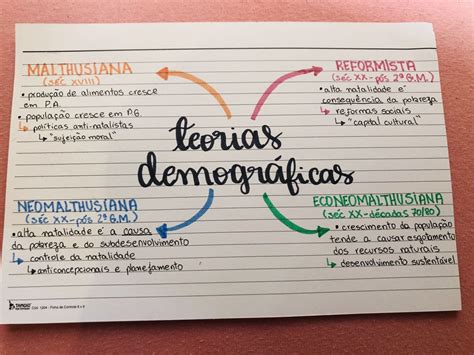 MALTHUSIANA
(séc XVIII)
• produção de alimentos cresce
em P.A.
• população cresce em P.G.
↳ políticas anti-natalistas
↳ "sujeição moral"
REFORMISTA
(séc XX - pós 2ª G.M.)
• alta natalidade é
consequência da pobreza
↳ reformas sociais
↳ "capital cultural"
teorias
demográficas
NEOMALTHUSIANA
(séc XX - pós 2ª G.M.)
• alta natalidade é a causa
da pobreza e do subdesenvolvimento
↳ controle da natalidade
↳ anticoncepcionais e planejamento
ECONEOMALTHUSIANA
(séc XX - décadas 70/80)
• crescimento da população
tende a causar esgotamento
dos recursos naturais
↳ desenvolvimento sustentável